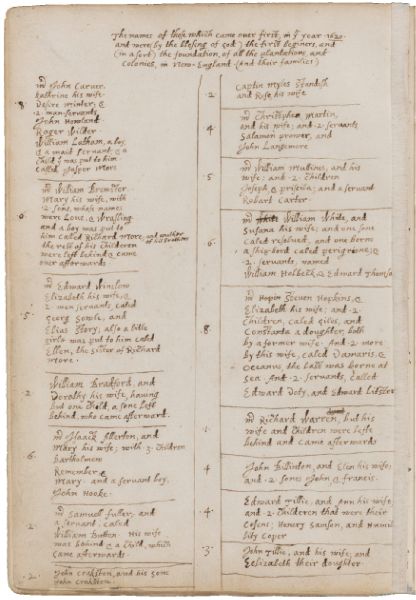 The names of those which came over first, in yᵉ year .1620.
and were (by the blesing of God) the first beginers, and
(in a sort) the foundation, of all the plantations, and
Colonies, in New-England. (And their families)
8.
mʳ John Carver.
kathrine his wife.
Desire minter; &
2. man-servants
John Howland
Roger Wilder
William Latham, a boy.
& a maid servant. & a
Child yᵗ was put to him
called Jasper More
6.
mʳ William Brewster.
Mary his wife, with
2. sons, whose names
were Love, & Wrasling
and a boy was put to
him called Richard More; and another
of his brothers
the rest of his Children
were left behind & came
over afterwards.
5.
mʳ Edward Winslow
Elizabeth his wife, &
2. men servants, caled
Georg Sowle, and
Elias Story; also a litle
girle was put to him caled
Ellen, the sister of Richard
More.
2.
William Bradford, and
Dorathy his wife, having
but one Child, a sone left
behind, who came afterward.
6.
mʳ Isaack Allerton, and
Mary his wife; with .3. Children
Bartholmew
Remember &
Mary. and a servant boy,
John Hooke.
2.
mʳ Samuell fuller; and
a servant, caled
William Butten. His wife
was behind & a Child, which
came afterwards.
2.
John Crakston, and his sone
John Crakston.
2.
Captin Myles Standish
and Rose, his wife
4.
mʳ Christopher Martin,
and his wife; and .2. servants,
Salamon prower, and
John Langemore
5.
mʳ William Mullines, and his
wife; and .2. Children
Joseph, & priscila; and a servant
Robart Carter.
6.
mʳ William White, and
Susana his wife; and one sone
caled resolved, and one borne
a ship-bord caled perigriene; &
2. servants, named
William Holbeck, & Edward Thomson
8.
mʳ Steven Hopkins, &
Elizabeth his wife; and .2.
Children, caled Giles, and
Constanta a doughter, both
by a former wife. And .2. more
by this wife, caled Damaris, &
Oceanus, the last was borne at
sea. And .2. servants, called
Edward Doty, and Edward Litster
1.
mʳ Richard Warren, but his
wife and Children were lefte
behind and came afterwards
4.
John Billinton, and Elen his wife;
and .2. sones John & francis.
4.
Edward Tillie, and Ann his wife;
and .2. Childeren that were their
Cosens; Henery Samson, and Humil-
lity Coper
3.
John Tillie, and his wife; and
Eelizabeth their doughter